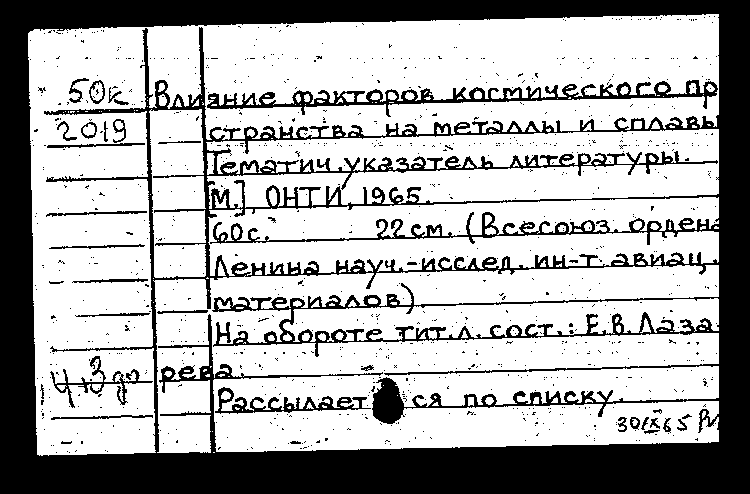 50к Влияние факторов космического пр
2019 странства на металлы и сплавы
Тематич. указатель литературы.
[М.], ОНТИ, 1965.
60с. 22 см. (Всесоюз. ордена
Ленина науч.-исслед. ин-т авиац.
материалов).
На обороте тит. л. сост.: Е.В. Лаза-
рева.
Рассылается по списку.
30/IX65